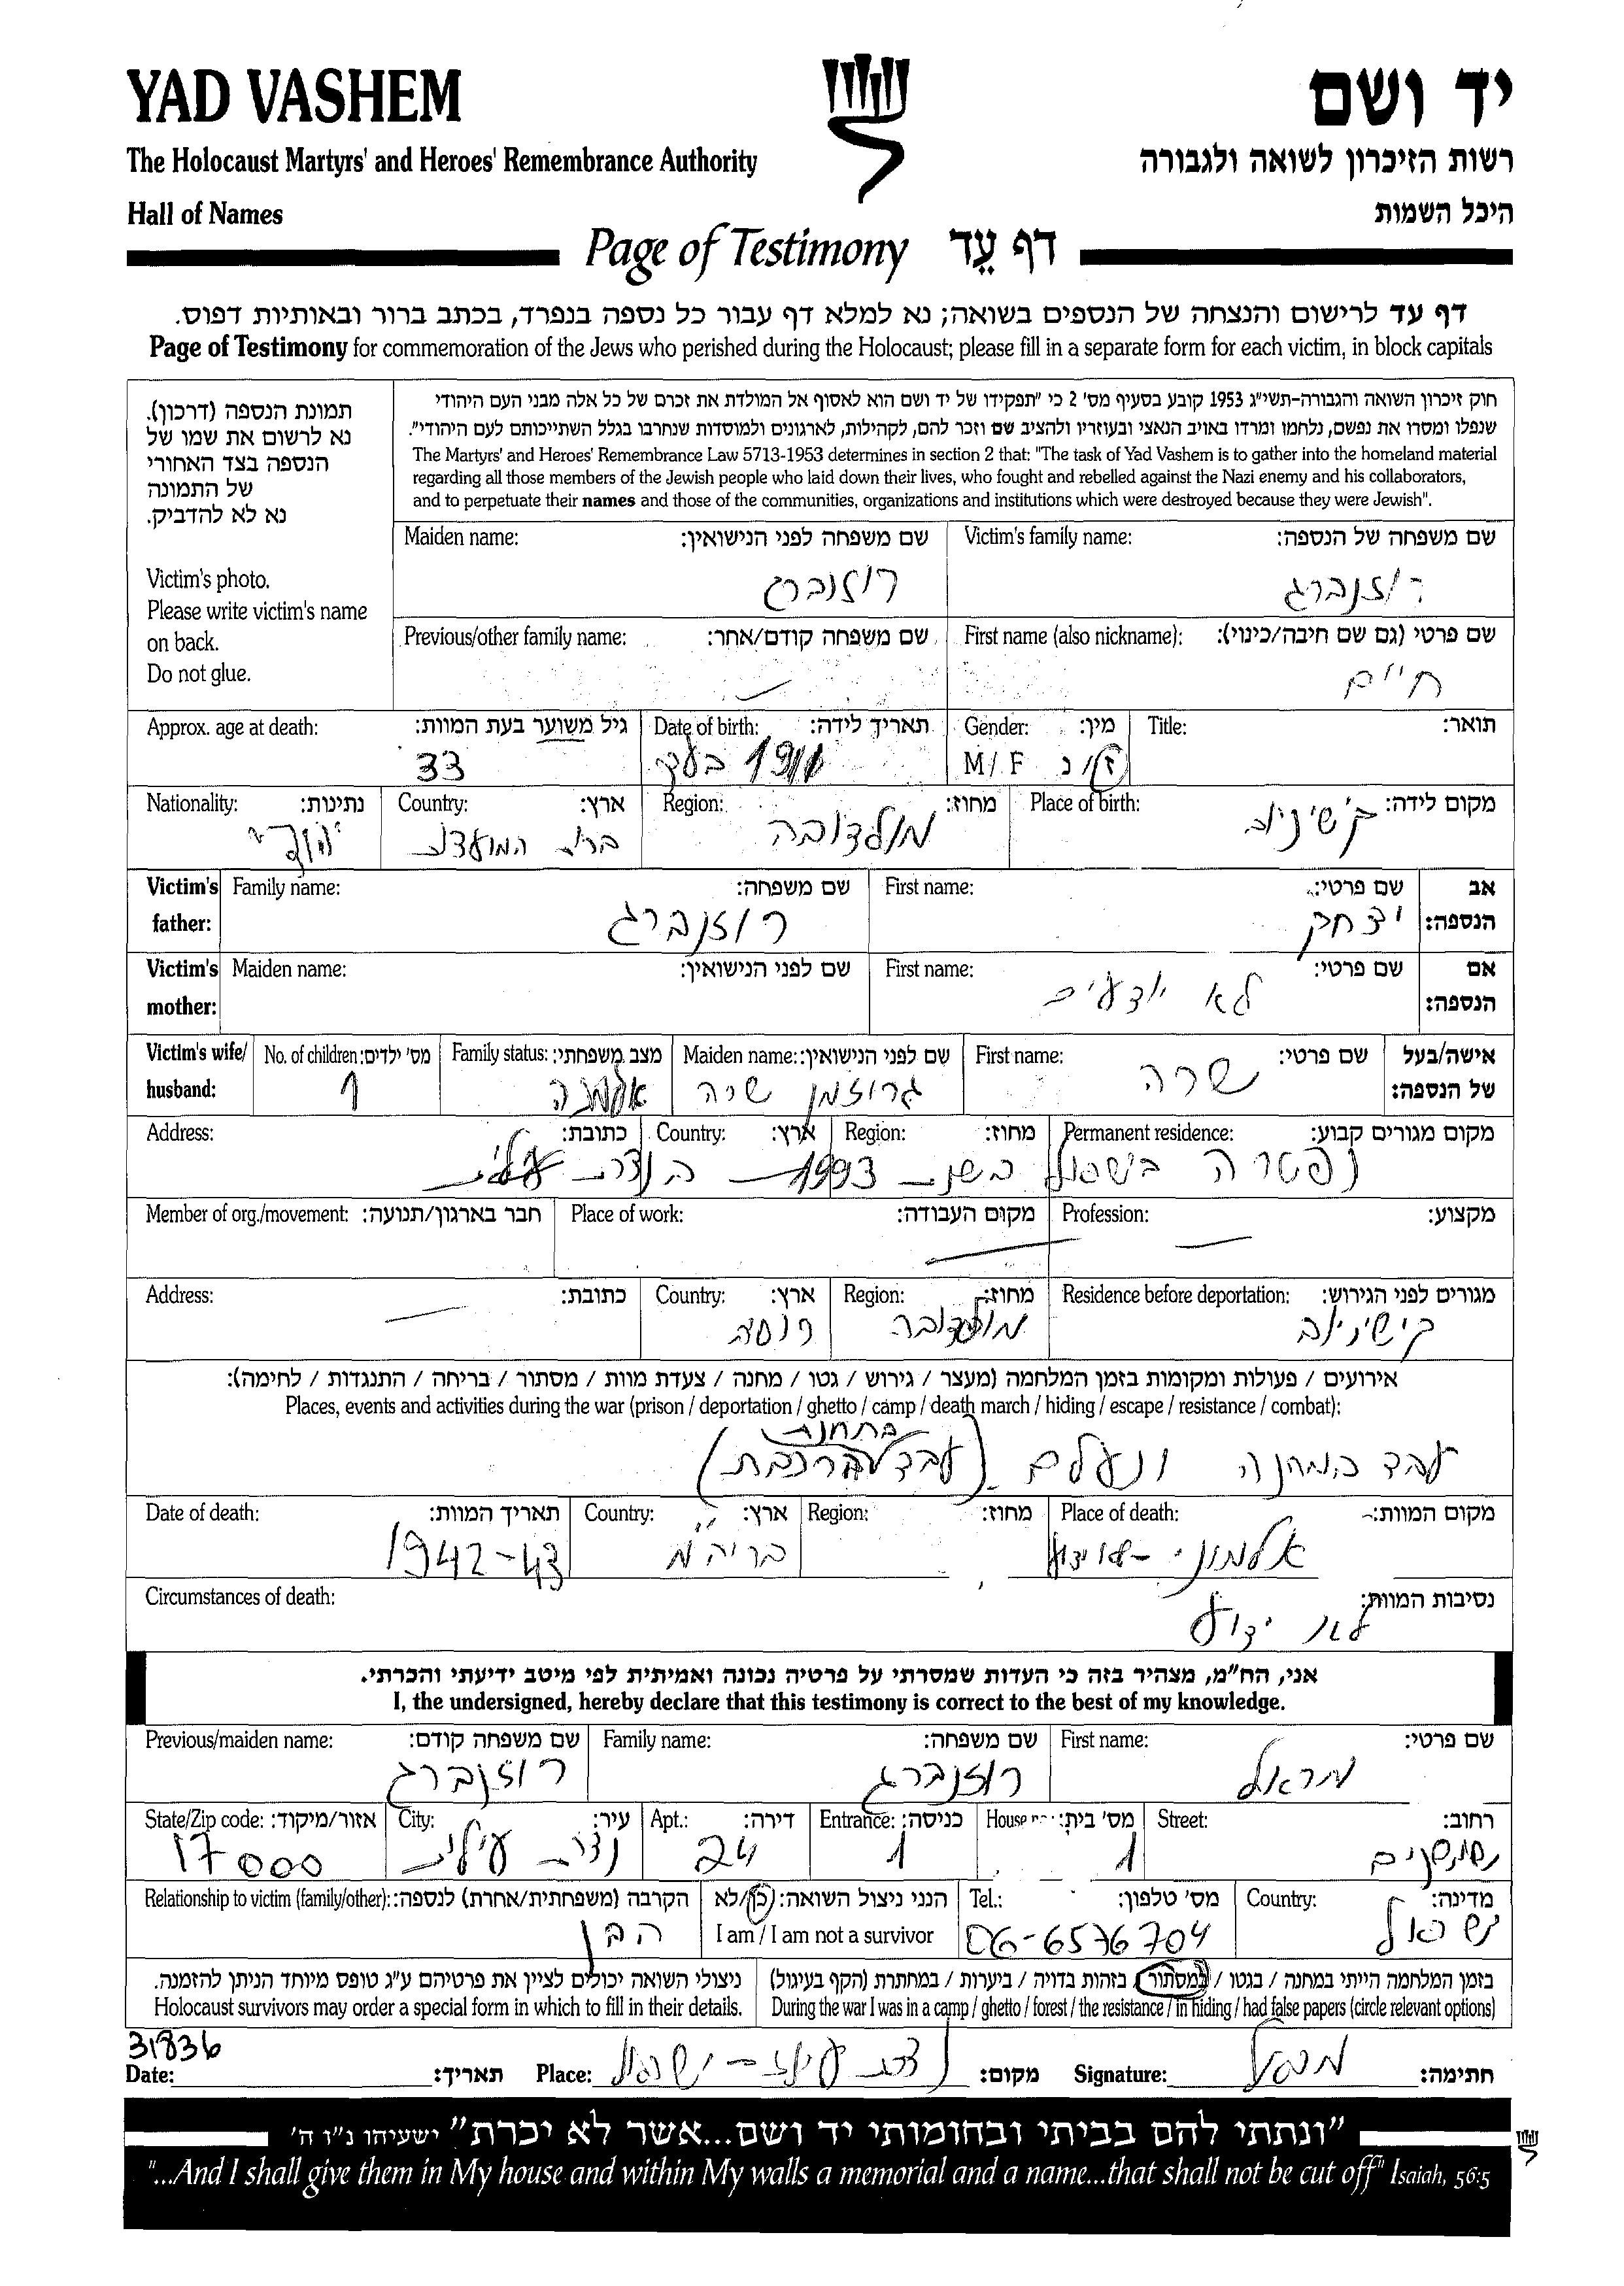 YAD VASHEM יד ושם
The Holocaust Martyrs' and Heroes' Remembrance Authority רשות הזיכרון לשואה ולגבורה
Hall of Names היכל השמות
Page of Testimony דף עֵד
דף עד לרישום והנצחה של הנספים בשואה; נא למלא דף עבור כל נספה בנפרד, בכתב ברור ובאותיות דפוס.
Page of Testimony for commemoration of the Jews who perished during the Holocaust; please fill in a separate form for each victim, in block capitals
תמונת הנספה (דרכון).
נא לרשום את שמו של
הנספה בצד האחורי
של התמונה
נא לא להדביק.
Victim's photo.
Please write victim's name
on back.
Do not glue.
חוק זיכרון השואה והגבורה-תשי"ג 1953 קובע בסעיף מס' 2 כי "תפקידו של יד ושם הוא לאסוף אל המולדת את זכרם של כל אלה מבני העם היהודי
שנפלו ומסרו את נפשם, נלחמו ומרדו באויב הנאצי ובעוזריו ולהציב שם וזכר להם, לקהילות, לארגונים ולמוסדות שנחרבו בגלל השתייכותם לעם היהודי".
The Martyrs' and Heroes' Remembrance Law 5713-1953 determines in section 2 that: "The task of Yad Vashem is to gather into the homeland material
regarding all those members of the Jewish people who laid down their lives, who fought and rebelled against the Nazi enemy and his collaborators,
and to perpetuate their names and those of the communities, organizations and institutions which were destroyed because they were Jewish".
Victim's family name: שם משפחה של הנספה: Maiden name: שם משפחה לפני הנישואין:
רוזנברג רוזנברג
First name (also nickname): שם פרטי (גם שם חיבה/כינוי): Previous/other family name: שם משפחה קודם/אחר:
חיים
Title: תואר: Gender: מין: Date of birth: תאריך לידה: Approx. age at death: גיל משוער בעת המוות:
M/F ז/נ 33
Place of birth: מקום לידה: Region: מחוז: Country: ארץ: Nationality: נתינות:
קישינוב מולדובה ברית המועצות יהודי
Victim's father: אב הנספה: First name: שם פרטי: Family name: שם משפחה:
יצחק רוזנברג
Victim's mother: אם הנספה: First name: שם פרטי: Maiden name: שם לפני הנישואין:
לא יודעים
Victim's wife/husband: אישה/בעל של הנספה: First name: שם פרטי: Maiden name: שם לפני הנישואין: Family status: מצב משפחתי: No. of children: מס' ילדים:
שרה גרוזמן שרה אלמנה 1
Permanent residence: מקום מגורים קבוע: Region: מחוז: Country: ארץ: Address: כתובת:
נפטרה בישראל בשנת 1993 בנצרת עילית
Profession: מקצוע: Place of work: מקום העבודה: Member of org./movement: חבר בארגון/תנועה:
Residence before deportation: מגורים לפני הגירוש: Region: מחוז: Country: ארץ: Address: כתובת:
קישינוב מולדובה רוסיה
אירועים / פעולות ומקומות בזמן המלחמה (מעצר / גירוש / גטו / מחנה / צעדת מוות / מסתור / בריחה / התנגדות / לחימה):
Places, events and activities during the war (prison / deportation / ghetto / camp / death march / hiding / escape / resistance / combat):
עבד במחנה ונעלם (עבד בתחנת רכבת)
Place of death: מקום המוות: Region: מחוז: Country: ארץ: Date of death: תאריך המוות:
אלמוני בריה"מ 1942-43
Circumstances of death: נסיבות המוות:
לא ידוע
אני, הח"מ, מצהיר בזה כי העדות שמסרתי על פרטיה נכונה ואמיתית לפי מיטב ידיעתי והכרתי.
I, the undersigned, hereby declare that this testimony is correct to the best of my knowledge.
First name: שם פרטי: Family name: שם משפחה: Previous/maiden name: שם משפחה קודם:
רוזנברג רוזנברג
Street: רחוב: House no.: מס' בית: Entrance: כניסה: Apt.: דירה: City: עיר: State/Zip code: אזור/מיקוד:
1 1 24 נצרת עילית 17000
Country: מדינה: Tel.: מס' טלפון: הנני ניצול השואה: כן/לא I am / I am not a survivor Relationship to victim (family/other): הקרבה (משפחתית/אחרת) לנספה:
ישראל 06-6576704 הבן
בזמן המלחמה הייתי במחנה / בגטו / במסתור / בזהות בדויה / ביערות / במחתרת (הקף בעיגול)
During the war I was in a camp / ghetto / forest / the resistance / in hiding / had false papers (circle relevant options)
ניצולי השואה יכולים לציין את פרטיהם ע"ג טופס מיוחד הניתן להזמנה.
Holocaust survivors may order a special form in which to fill in their details.
31836
Date: תאריך: Place: נצרת עילית - ישראל מקום: Signature: חתימה:
"ונתתי להם בביתי ובחומותי יד ושם...אשר לא יכרת" ישעיהו נ"ו ה'
"...And I shall give them in My house and within My walls a memorial and a name...that shall not be cut off" Isaiah, 56:5